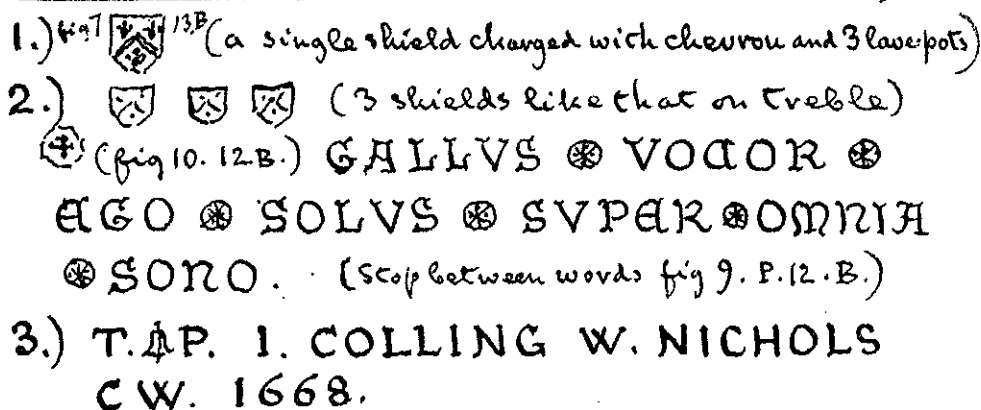 1.) fig 7 13.B (a single shield charged with chevron and 3 lave-pots)
2.) (3 shields like that on treble)
(fig 10. 12.B.) GALLVS VOCOR
EGO SOLVS SVPER OMNIA
SONO. (Stop between words fig 9. P.12.B.)
3.) T. P. I. COLLING W. NICHOLS
C W. 1668.